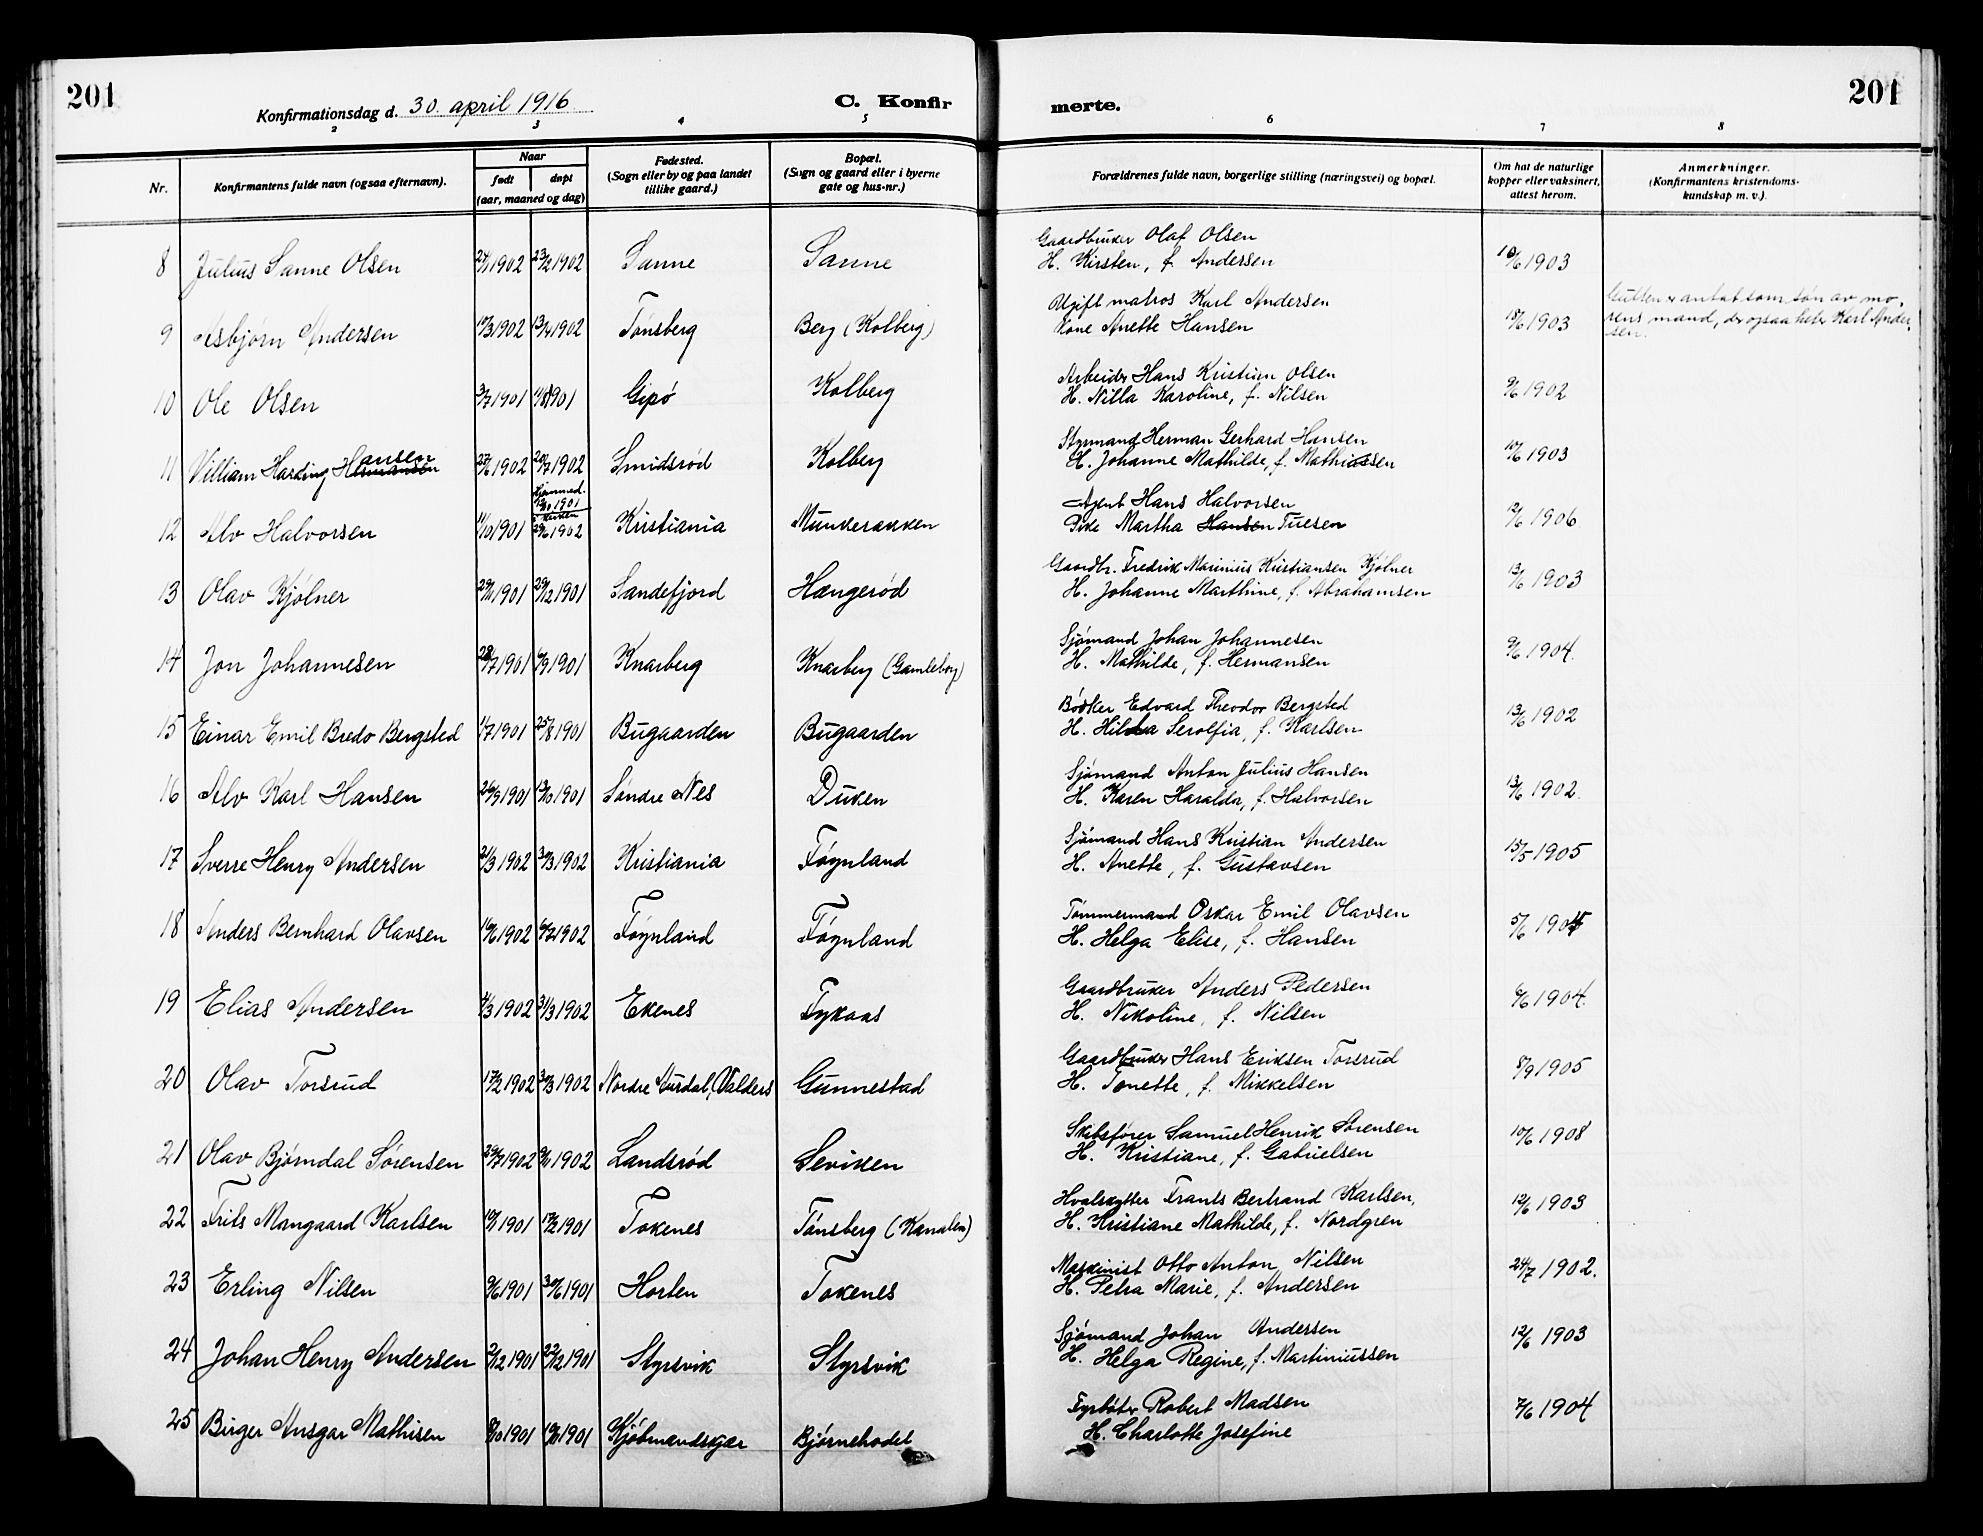 201
Konfirmationsdag d. 30. april 1916
C. Konfir
merte.
201
2 3 4 5 6 7 8
Nr. Konfirmantens fulde navn (ogsaa efternavn). Naar født døpt (aar, maaned og dag) Fødested. (Sogn eller by og paa landet tillike gaard.) Bopæl. (Sogn og gaard eller i byerne gate og hus-nr.) Forældrenes fulde navn, borgerlige stilling (næringsvei) og bopæl. Om hat de naturlige kopper eller vaksinert, attest herom. Anmerkninger. (Konfirmantens kristendomskundskap m. v.).
8 Julius Sanne Olsen 24/1 1902 23/2 1902 Sanne Sanne Gaardbruker Olaf Olsen
H. Kirsten, f. Andersen 10/6 1903
9 Asbjørn Andersen 17/3 1902 13/4 1902 Tønsberg Berg (Kolberg) Ugift matros Karl Andersen
Kone Anette Hansen 18/6 1903 Gutten er antat som søn av mo-
rens mand, der ogsaa heter Karl Ander-
sen.
10 Ole Olsen 3/7 1901 1901 Gipø Kolberg Arbeider Hans Kristian Olsen
H. Nilla Karoline, f. Nilsen 9/6 1902
11 Villiam Harding Hermansen Hansen 27/6 1902 20/7 1902 Smidsrød Kolberg Styrmand Herman Gerhard Hansen
H. Johanne Mathilde, f. Mathiassen 10/6 1903
12 Alv Halvorsen 11/10 1901 hjemmed. 1901 i kirken 29/6 1902 Kristiania Munkerekken Agent Hans Halvorsen
Pike Martha Hansen Tuesen 12/6 1906
13 Olav Kjølner 29/11 1901 29/12 1901 Sandefjord Hængerød Gaardbr. Fredrik Marinius Kristiansen Kjølner
H. Johanne Marthine, f. Abrahamsen 13/6 1903
14 Jon Johannesen 28/7 1901 1901 Knarberg Knarberg (Gamleborg) Sjømand Johan Johannesen
H. Mathilde, f. Hermansen 9/6 1904.
15 Einar Emil Bredo Bergsted 11/7 1901 25/8 1901 Bugaarden Bugaarden Bødker Edvard Theodor Bergsted
H. Hilda Serolfia, f. Karlsen 13/6 1902
16 Alv Karl Hansen 26/9 1901 13/10 1901 Søndre Nes Duken Sjømand Anton Julius Hansen
H. Karen Haralda, f. Halvorsen 13/6 1902.
17 Sverre Henry Andersen 21/3 1902 30/3 1902 Kristiania Føynland Sjømand Hans Kristian Andersen
H. Anette, f. Gustavsen 15/5 1905
18 Anders Bernhard Olavsen 16/6 1902 6/7 1902 Føynland Føynland Tømmermand Oskar Emil Olavsen
H. Helga Elise, f. Hansen 5/6
19 Elias Andersen 4/3 1902 31/3 1902 Ekenes Fykaas Gaardbruker Anders Pedersen
H. Nikoline, f. Nilsen 6/6 1904.
20 Olav Torsrud 17/2 1902 30/3 1902 Nordre Aurdal, Valders Gunnestad Gaardbruker Hans Eriksen Torsrud
H. Tonette, f. Mikkelsen 8/9 1905
21 Olav Bjørndal Sørensen 29/7 1902 9/11 1902 Landsrød Leviken Skibsfører Samuel Henrik Sørensen
H. Kristiane, f. Gabrielsen 10/6 1908
22 Frits Mangaard Karlsen 1901 1901 Tokenes Tønsberg (Kanalen) Hvalskytter Frants Bertrand Karlsen,
H. Kristiane Mathilde, f. Nordgren 12/6 1903
23 Erling Nilsen 9/6 1901 30/6 1901 Horten Tokenes Maskinist Otto Anton Nilsen
H. Petra Marie, f. Andersen 24/7 1902.
24 Johan Henry Andersen 2/12 1901 22/12 1901 Styrsvik Styrsvik Sjømand Johan Andersen
H. Helga Regine, f. Martiniussen 12/6 1903
25 Birger Ansgar Mathisen 8/10 1901 1901 Kjøbmandskjær Bjørnehodet Fyrbøter Robert Madsen
H. Charlotte Josefine 7/6 1904